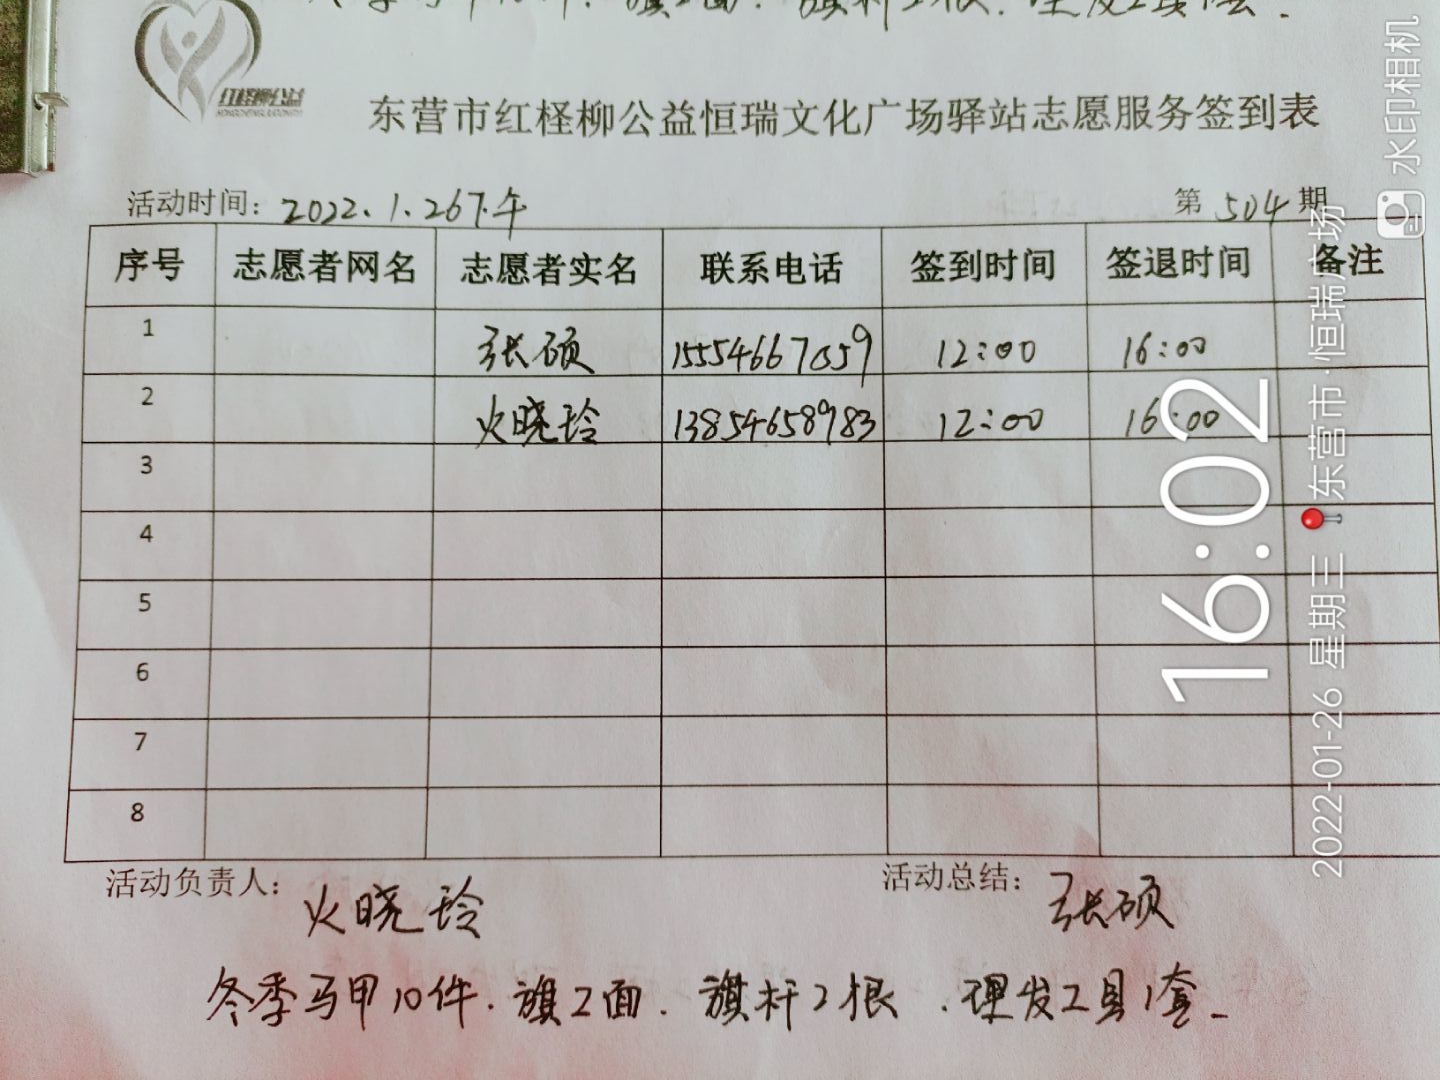 旗2面. 旗杆2根. 理发工具1套.
红柽柳公益
东营市红柽柳公益恒瑞文化广场驿站志愿服务签到表
活动时间: 2022.1.26下午 第 504 期
序号 志愿者网名 志愿者实名 联系电话 签到时间 签退时间 备注
1 张硕 15554667059 12:00 16:00
2 火晓玲 13854658983 12:00 16:00
3
4
5
6
7
8
活动负责人: 火晓玲 活动总结: 张硕
冬季马甲10件. 旗2面. 旗杆2根. 理发工具1套.
水印相机
16:02
2022-01-26 星期三 东营市·恒瑞广场